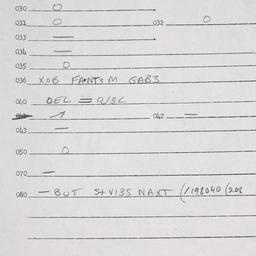 030 O
031 O 032 O
033 —
034 —
035 O
036 XOB FANTSM GABS
040 DEL = 0/3C
042 —
043 —
050 O
070 —
080 — BUT StVI3S NAXT (1198040 (208